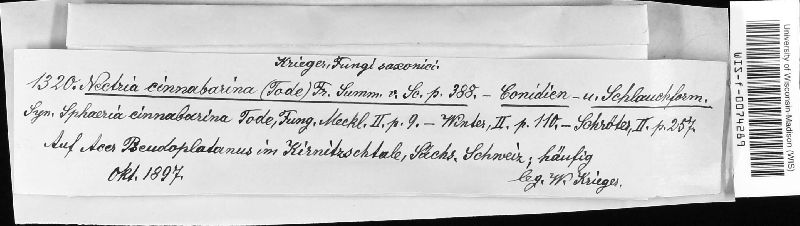 Krieger, Fungi saxonici.
1320. Nectria cinnabarina (Tode) Fr. Summ. v. Sc. p. 388. – Conidien- u. Schlauchform.
Syn. Sphaeria cinnabarina Tode, Fung. Meckl. II. p. 9. – Winter, II. p. 110. – Schröter, II. p. 257.
Auf Acer Pseudoplatanus im Kirnitzschtale, Sächs. Schweiz; häufig
Okt. 1897.
lg. W. Krieger.
University of Wisconsin Madison (WIS)
WIS-f-0074269